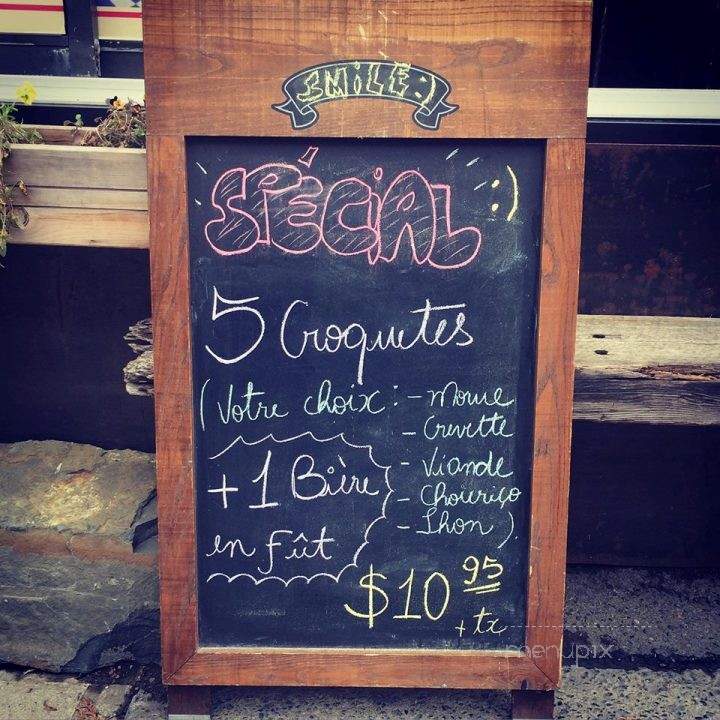 SMiLE :)
SPÉCiAL :)
5 Croquetes
(Votre choix : - Morue
- Crevette
- Viande
- Chouriço
- Thon ).
+ 1 Bière
en fût
$10 95
+ tx
menupix